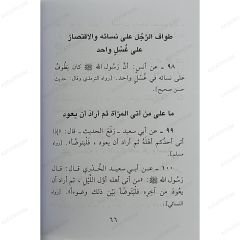 طواف الرَّجُل على نسائه والاقتصارُ
على غُسْلٍ واحد
٩٨ ـ عن أنس: أنَّ رَسُولَ اللهِ ﷺ كانَ يَطُوفُ
على نسائه في غُسْلٍ واحد. [رواه الترمذي وقال: حديث
حسن صحيح].
ما على من أتى المرْأةَ ثم أرادَ أن يعود
٩٩ ـ عن أبي سعيد ـ رَفَعَ الحديث ـ قال: «إذا
أتى أحدُكم أهلَهُ ثم أراد أن يَعُودَ، فَلْيَتَوَضَّأْ». [رواه
مسلم].
١٠٠ ـ عن أبي سعيد الخُدْري قال: قال
رسولُ الله ﷺ: «من أتى أهلَه أوَّلَ اللَّيْلِ، ثم أراد أن
يعُودَ من آخِرِه، فَلْيَتَوَضَّأْ بَيْنَ ذلكَ وضوءاً». [رواه
النسائي].
٦٦